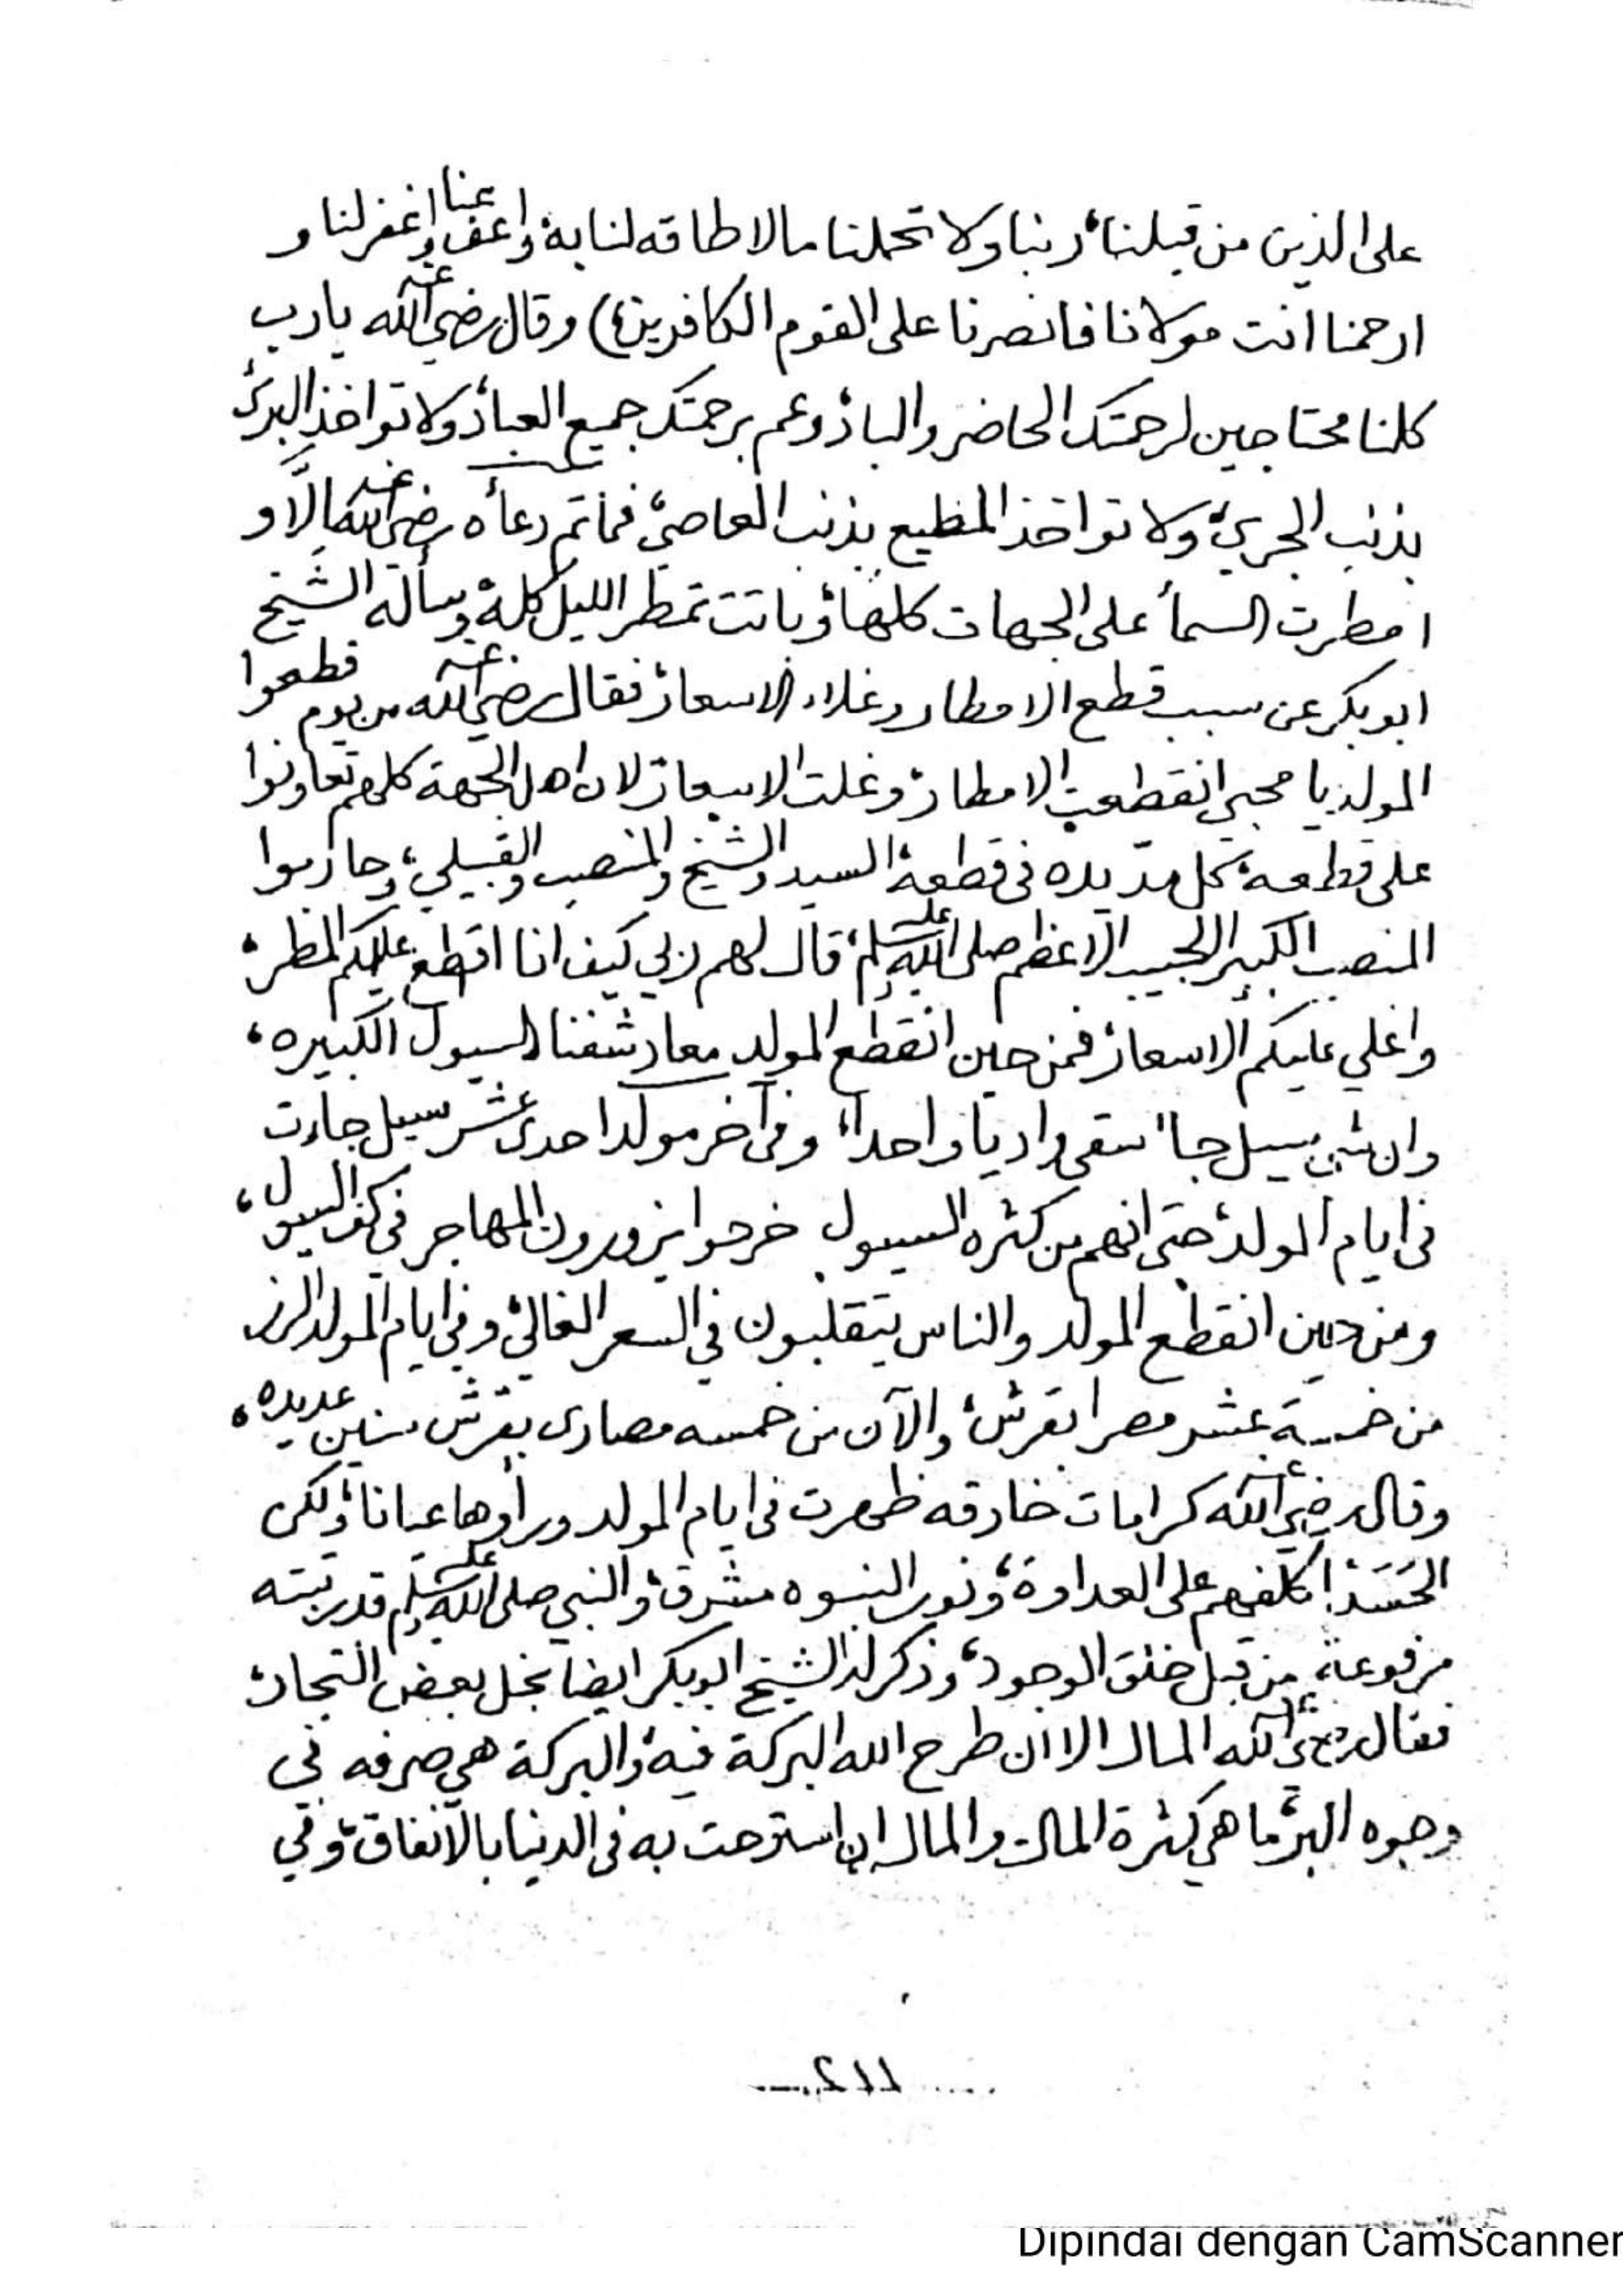 على الذين من قبلنا، ربنا ولا تحملنا مالا طاقه لنا به، واعف عنا واغفرلنا و
ارحمنا انت مولانا فانصرنا على القوم الكافرين) وقال رضي الله عنه يارب
كلنا محتاجين لرحمتك الحاضر والباد، وعم برحمتك جميع العباد، ولا تواخذ البرئ
بذنب الجري، ولا تواخذ المطيع بذنب العاصي، فماتم دعأه رضي الله عنه الّا و
امطرت السمأ على الجهات كلها، وباتت تمطر الليل كله، وسأله الشيخ
ابوبكر عن سبب قطع الامطار وغلاء الاسعار، فقال رضي الله عنه من يوم قطعوا
المولد يا محبي انقطعت الامطار، وغلت الاسعار، لان اهل الجهة كلهم تعاونوا
على قطعه، كل مدّ يده في قطعه، السيد والشيخ والمنصب والقبيلي، وحاربوا
المنصب الكبير الحبيب الاعظم صلى الله عليه وسلم، قال لهم ربي كيف انا اقطع عليكم المطر،
واغلي عليكم الاسعار، فمن حين انقطع المولد معاد شفنا السيول الكبيره،
وان شي سيل جا، سقى واديا واحدا، وفي آخر مولد احدى عشر سيل جاءت
في ايام المولد، حتى انهم من كثره السيول خرجوا يزورون المهاجر في السيول،
ومن حين انقطع المولد والناس يتقلبون في السعر الغالي، وفي ايام المولد الرز
من خمسة عشر مصرا بقرش، والآن من خمسه مصارى بقرش سنين عديده،
وقال رضي الله عنه كرامات خارقه ظهرت في ايام المولد ورأوها عيانا، ولكن
الحَسَد، اكلفهم على العداوة، ونور النبوه مشرق، والنبي صلى الله عليه وسلم قد ربته
مرفوعة من قبل خلق الوجود، وذكر له الشيخ ابوبكر ايضا بخل بعض التجار،
فقال رضي الله عنه المال الا ان طرح الله البركة فيه، والبركة هي صرفه في
وجوه البر، ما هي كثرة المال، والمال ان استرحت به في الدنيا بالانفاق، وفي
٢١١
Dipindai dengan CamScanner